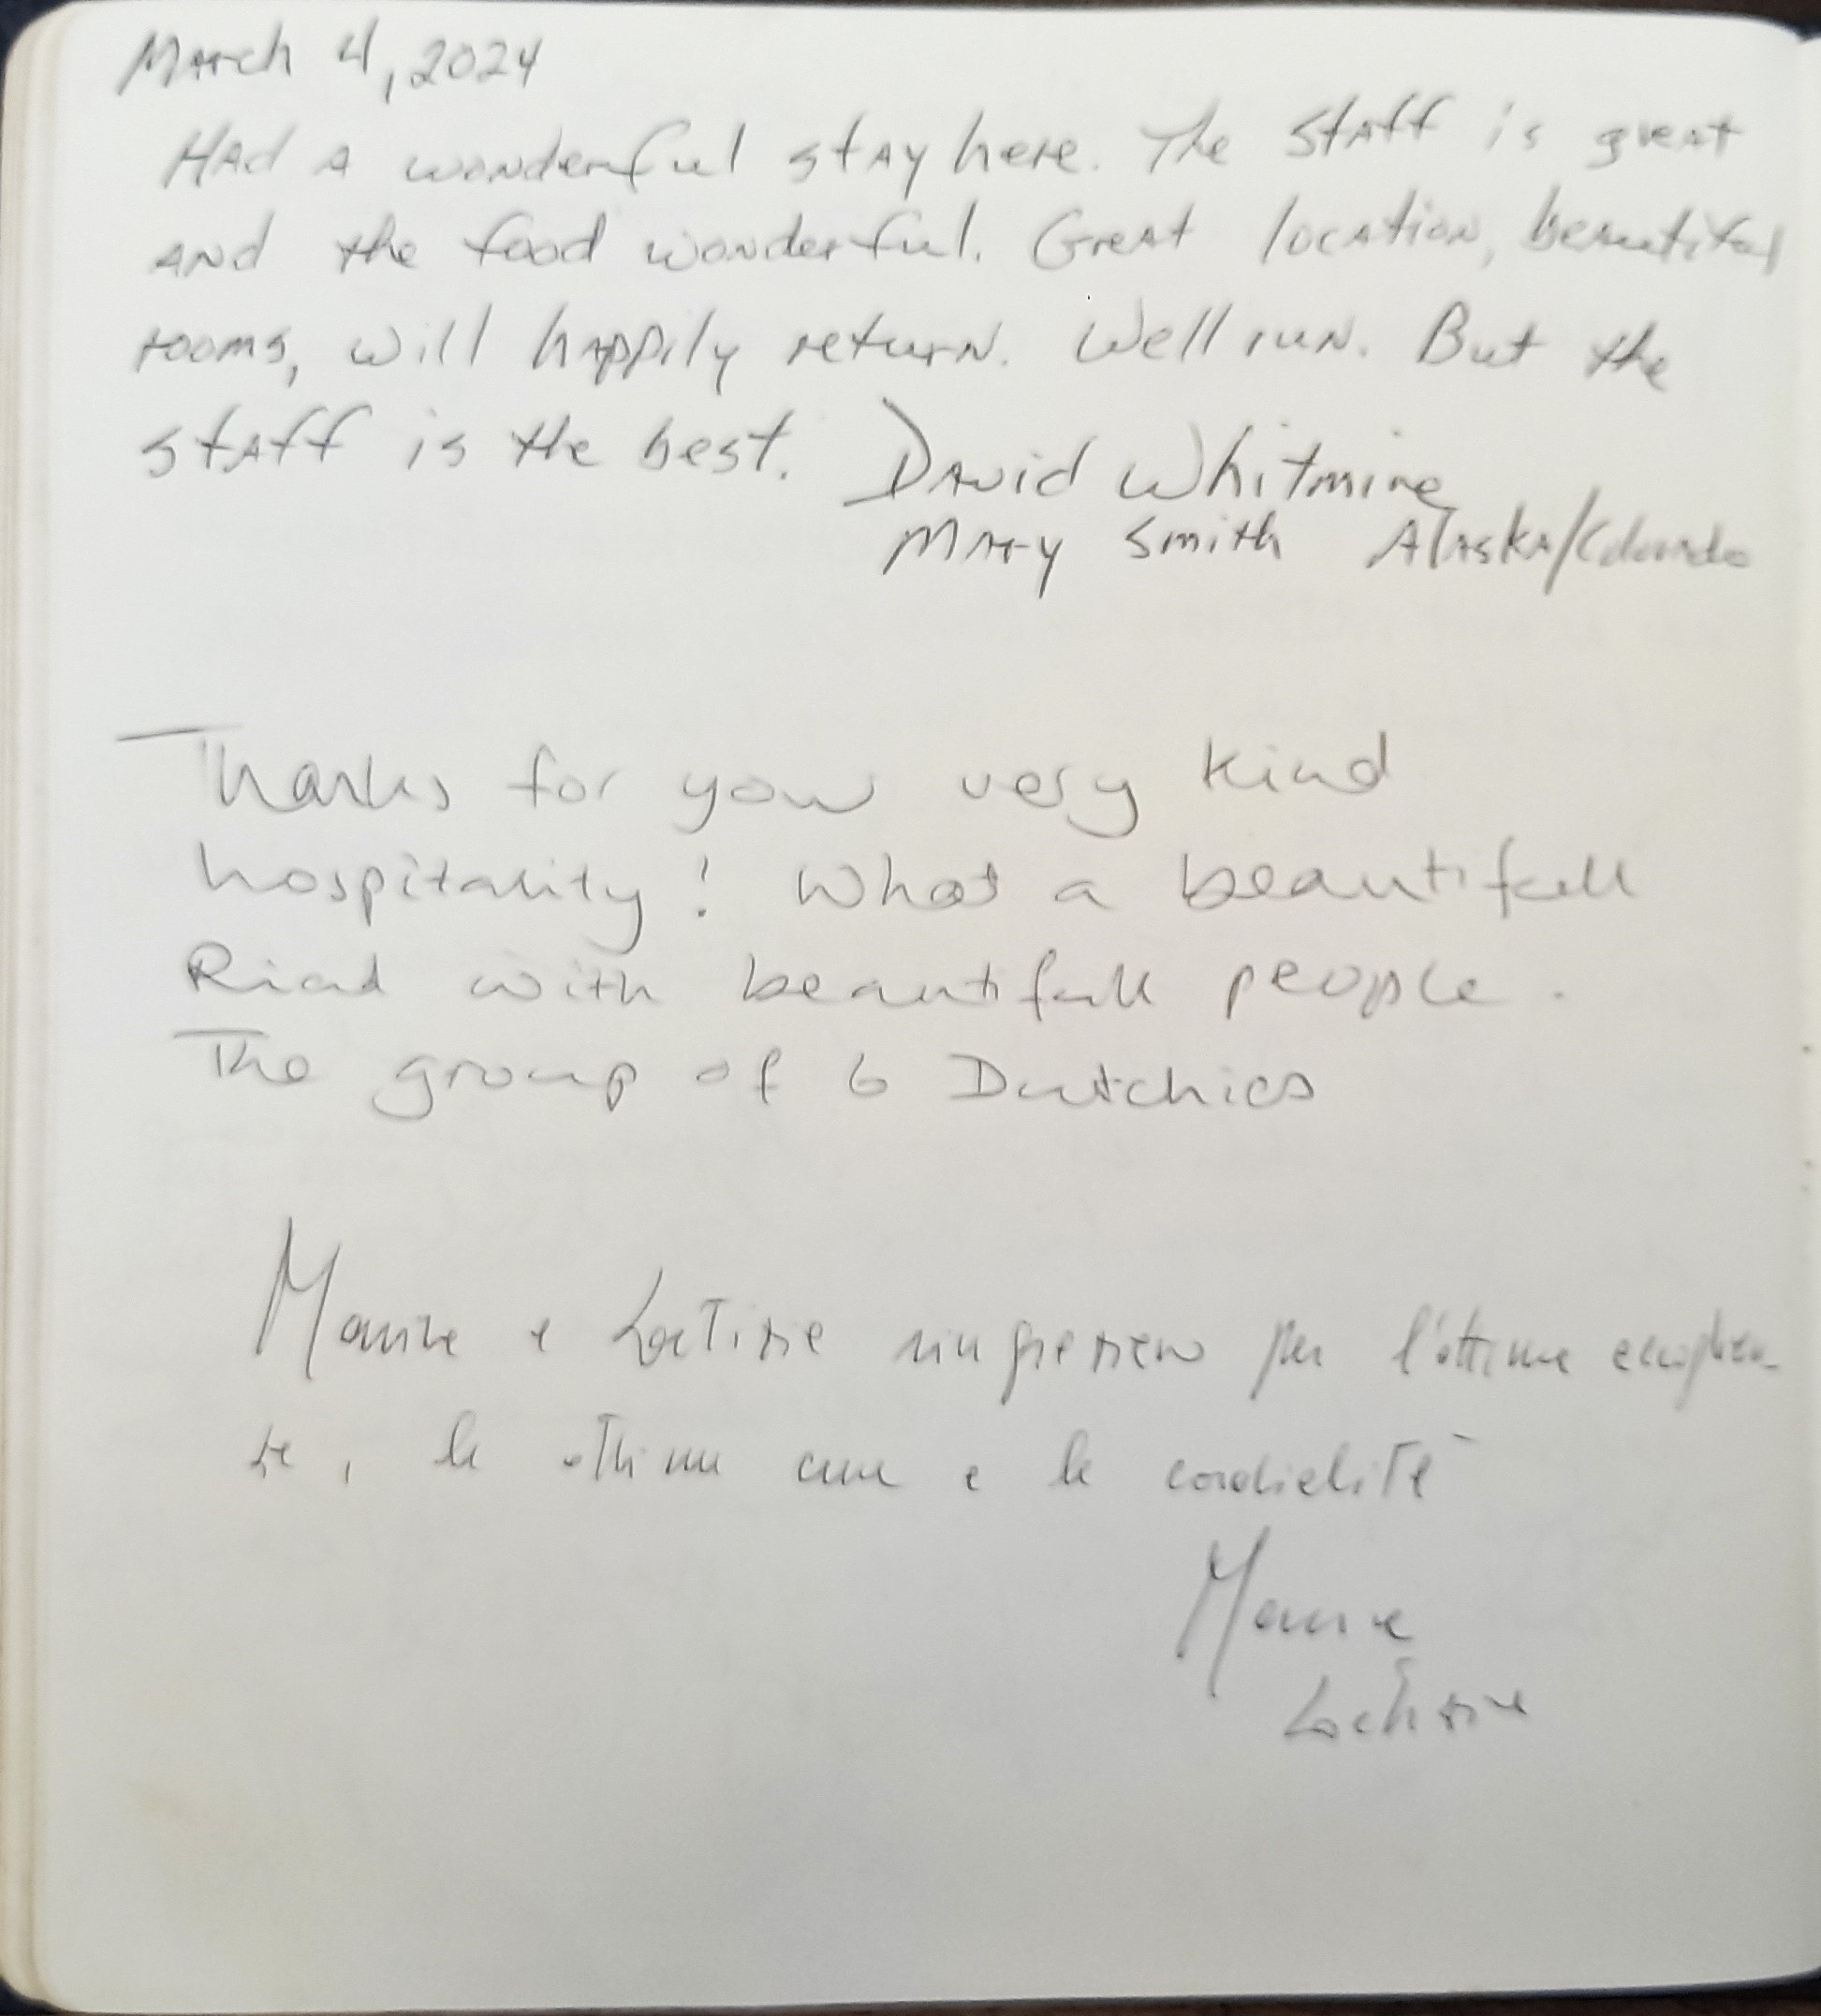 March 4, 2024
Had a wonderful stay here. The staff is great
and the food wonderful. Great location, beautiful
rooms, will happily return. Well run. But the
staff is the best. David Whitmire
Mary Smith Alaska/Colorado
Thanks for your very kind
hospitality! What a beautifull
Riad with beautifull people.
The group of 6 Dutchies
e ringraziano per l'ottima accoglien-
za, la ottima e la cordialità